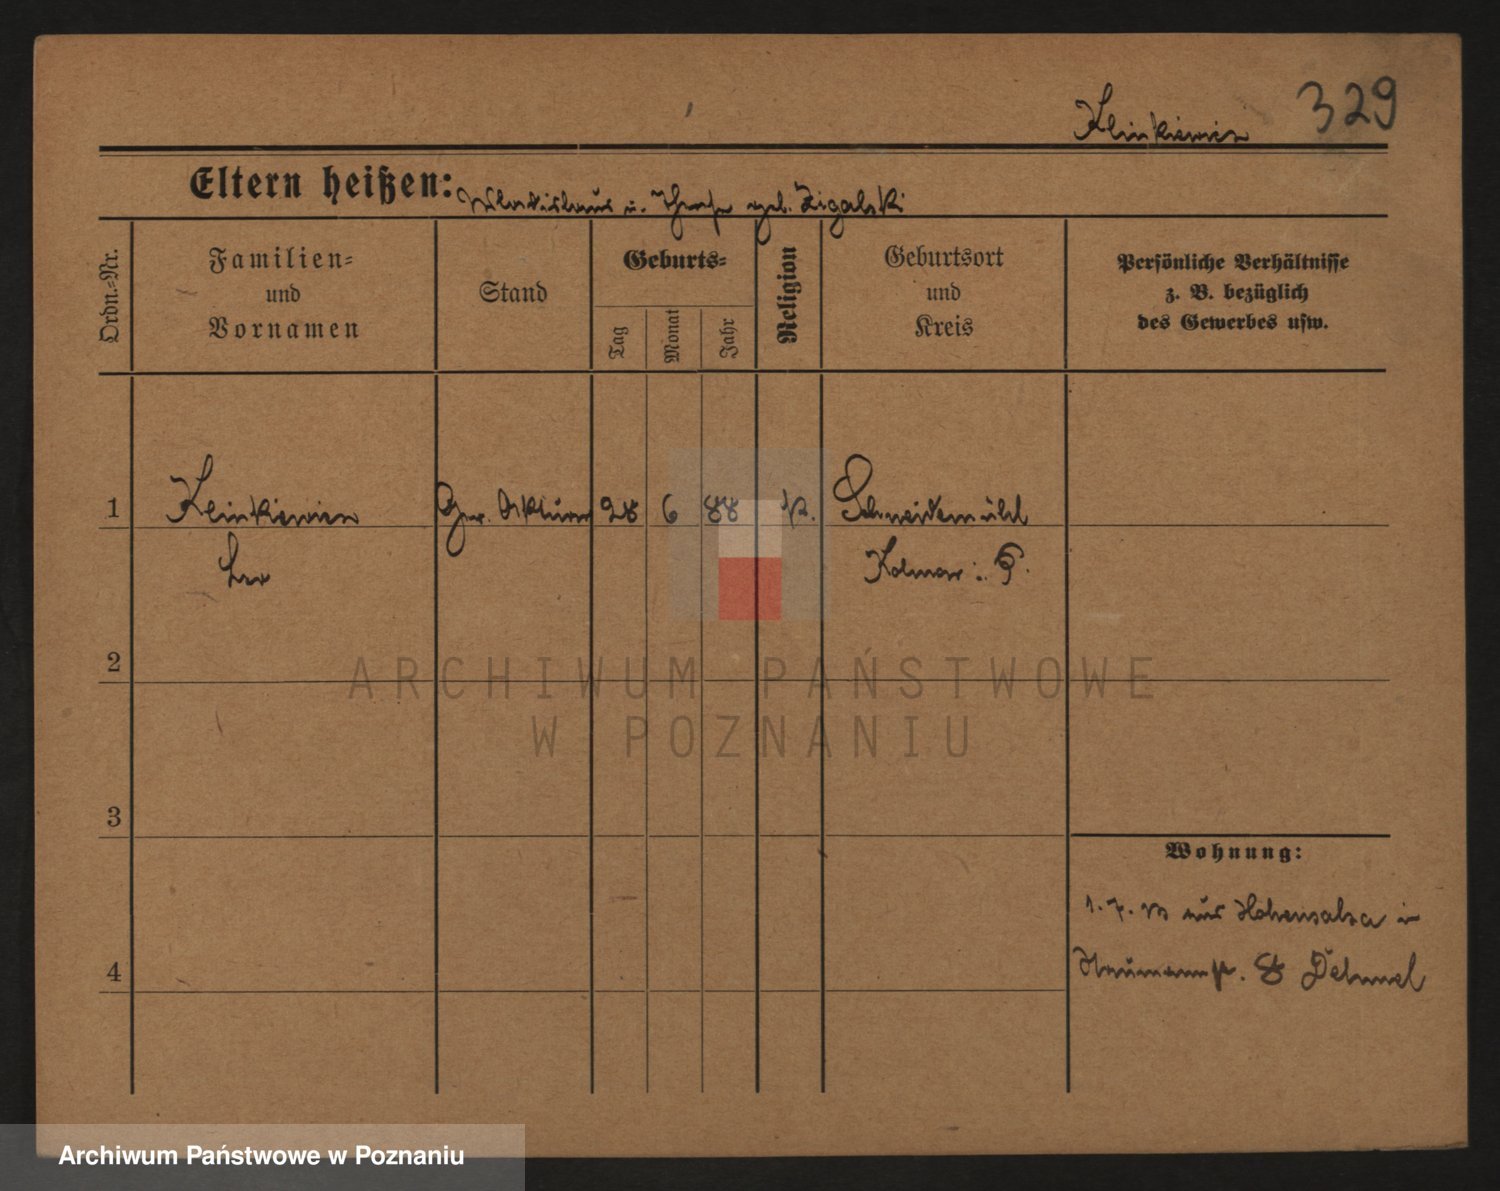 329
Klinkiewicz
Eltern heißen: Wladislaus u. geb. Zigalski
Ordn.=Nr.
Familien=
und
Vornamen
Stand
Geburts=
Tag
Monat
Jahr
Religion
Geburtsort
und
Kreis
Persönliche Verhältnisse
z. B. bezüglich
des Gewerbes usw.
1 Klinkiewicz Ger. Aktuar 28 6 88 k. Schneidemühl
Leo Kolmar i. P.
2
3
4
Wohnung:
1. 7. 13 aus Hohensalza in
Naumannstr. 8 Dehmel
ARCHIWUM PAŃSTWOWE
W POZNANIU
Archiwum Państwowe w Poznaniu